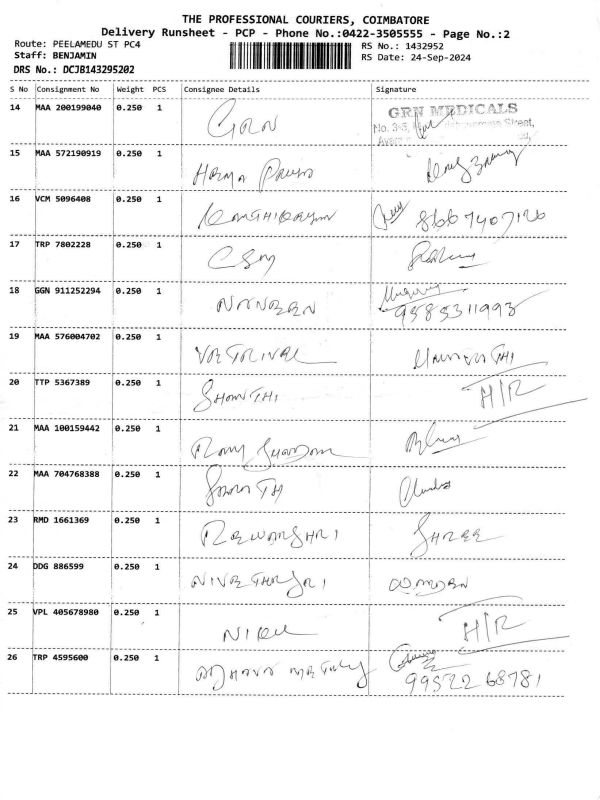 THE PROFESSIONAL COURIERS, COIMBATORE
Delivery Runsheet - PCP - Phone No.:0422-3505555 - Page No.:2
Route: PEELAMEDU ST PC4
RS No.: 1432952
Staff: BENJAMIN
RS Date: 24-Sep-2024
DRS No.: DCJB143295202
S No Consignment No Weight PCS Consignee Details Signature
14 MAA 200199040 0.250 1 GRN GRN MEDICALS
No. 3 Street,
15 MAA 572190919 0.250 1 HEMA
16 VCM 5096408 0.250 1 8667407126
17 TRP 7802228 0.250 1 CSM
18 GGN 911252294 0.250 1 NAVEEN
9585311993
19 MAA 576004702 0.250 1 VETRIVEL
20 TTP 5367389 0.250 1 SHANTHI H/R
21 MAA 100159442 0.250 1
22 MAA 704768388 0.250 1
23 RMD 1661369 0.250 1 SHREE
24 DDG 886599 0.250 1
25 VPL 405678980 0.250 1 H/R
26 TRP 4595600 0.250 1
99522 68781